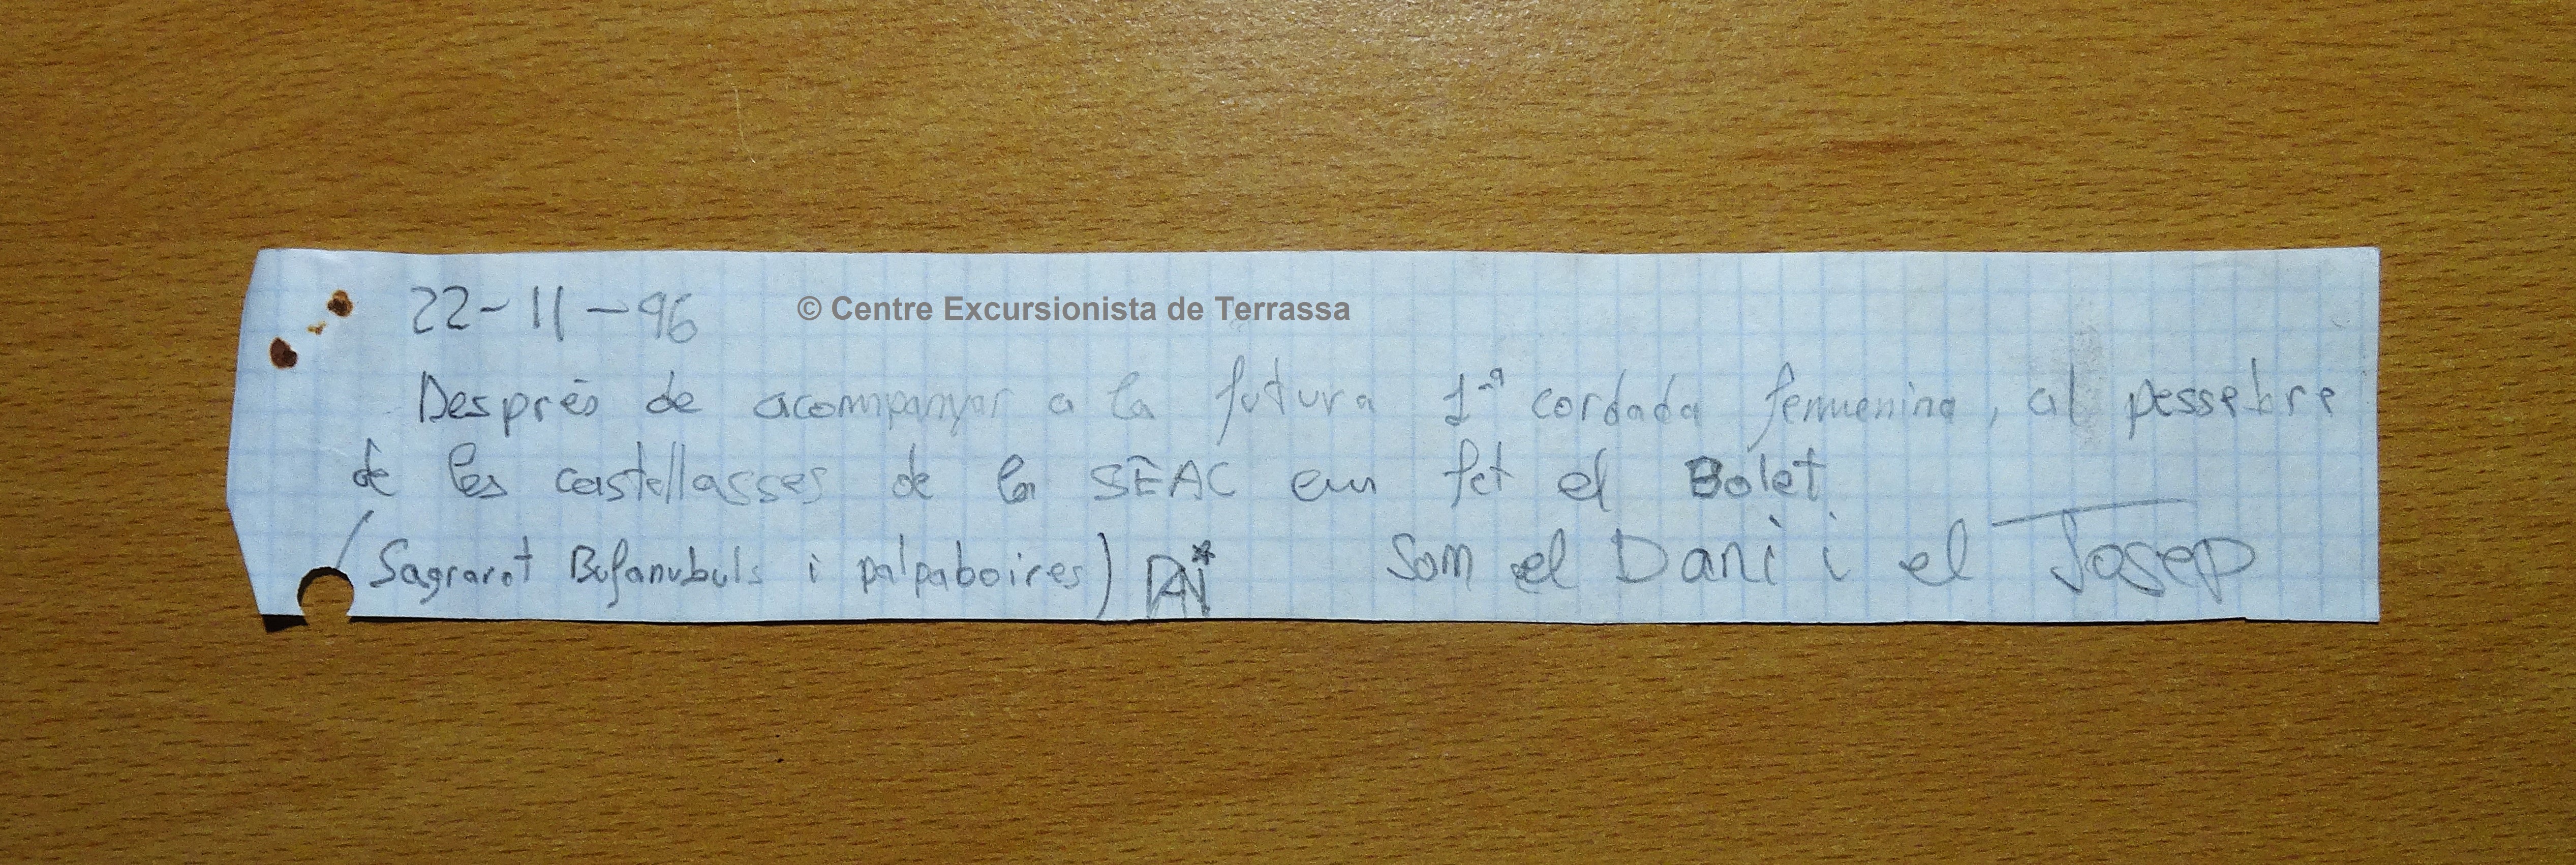 22-11-96
© Centre Excursionista de Terrassa
Després de acompanyar a la futura 1ª cordada femenina, al pessebre
de les castellasses de la SEAC em fet el Bolet
(Sagrarot Bufanubuls i palpaboires) DANI Som el Dani i el Josep